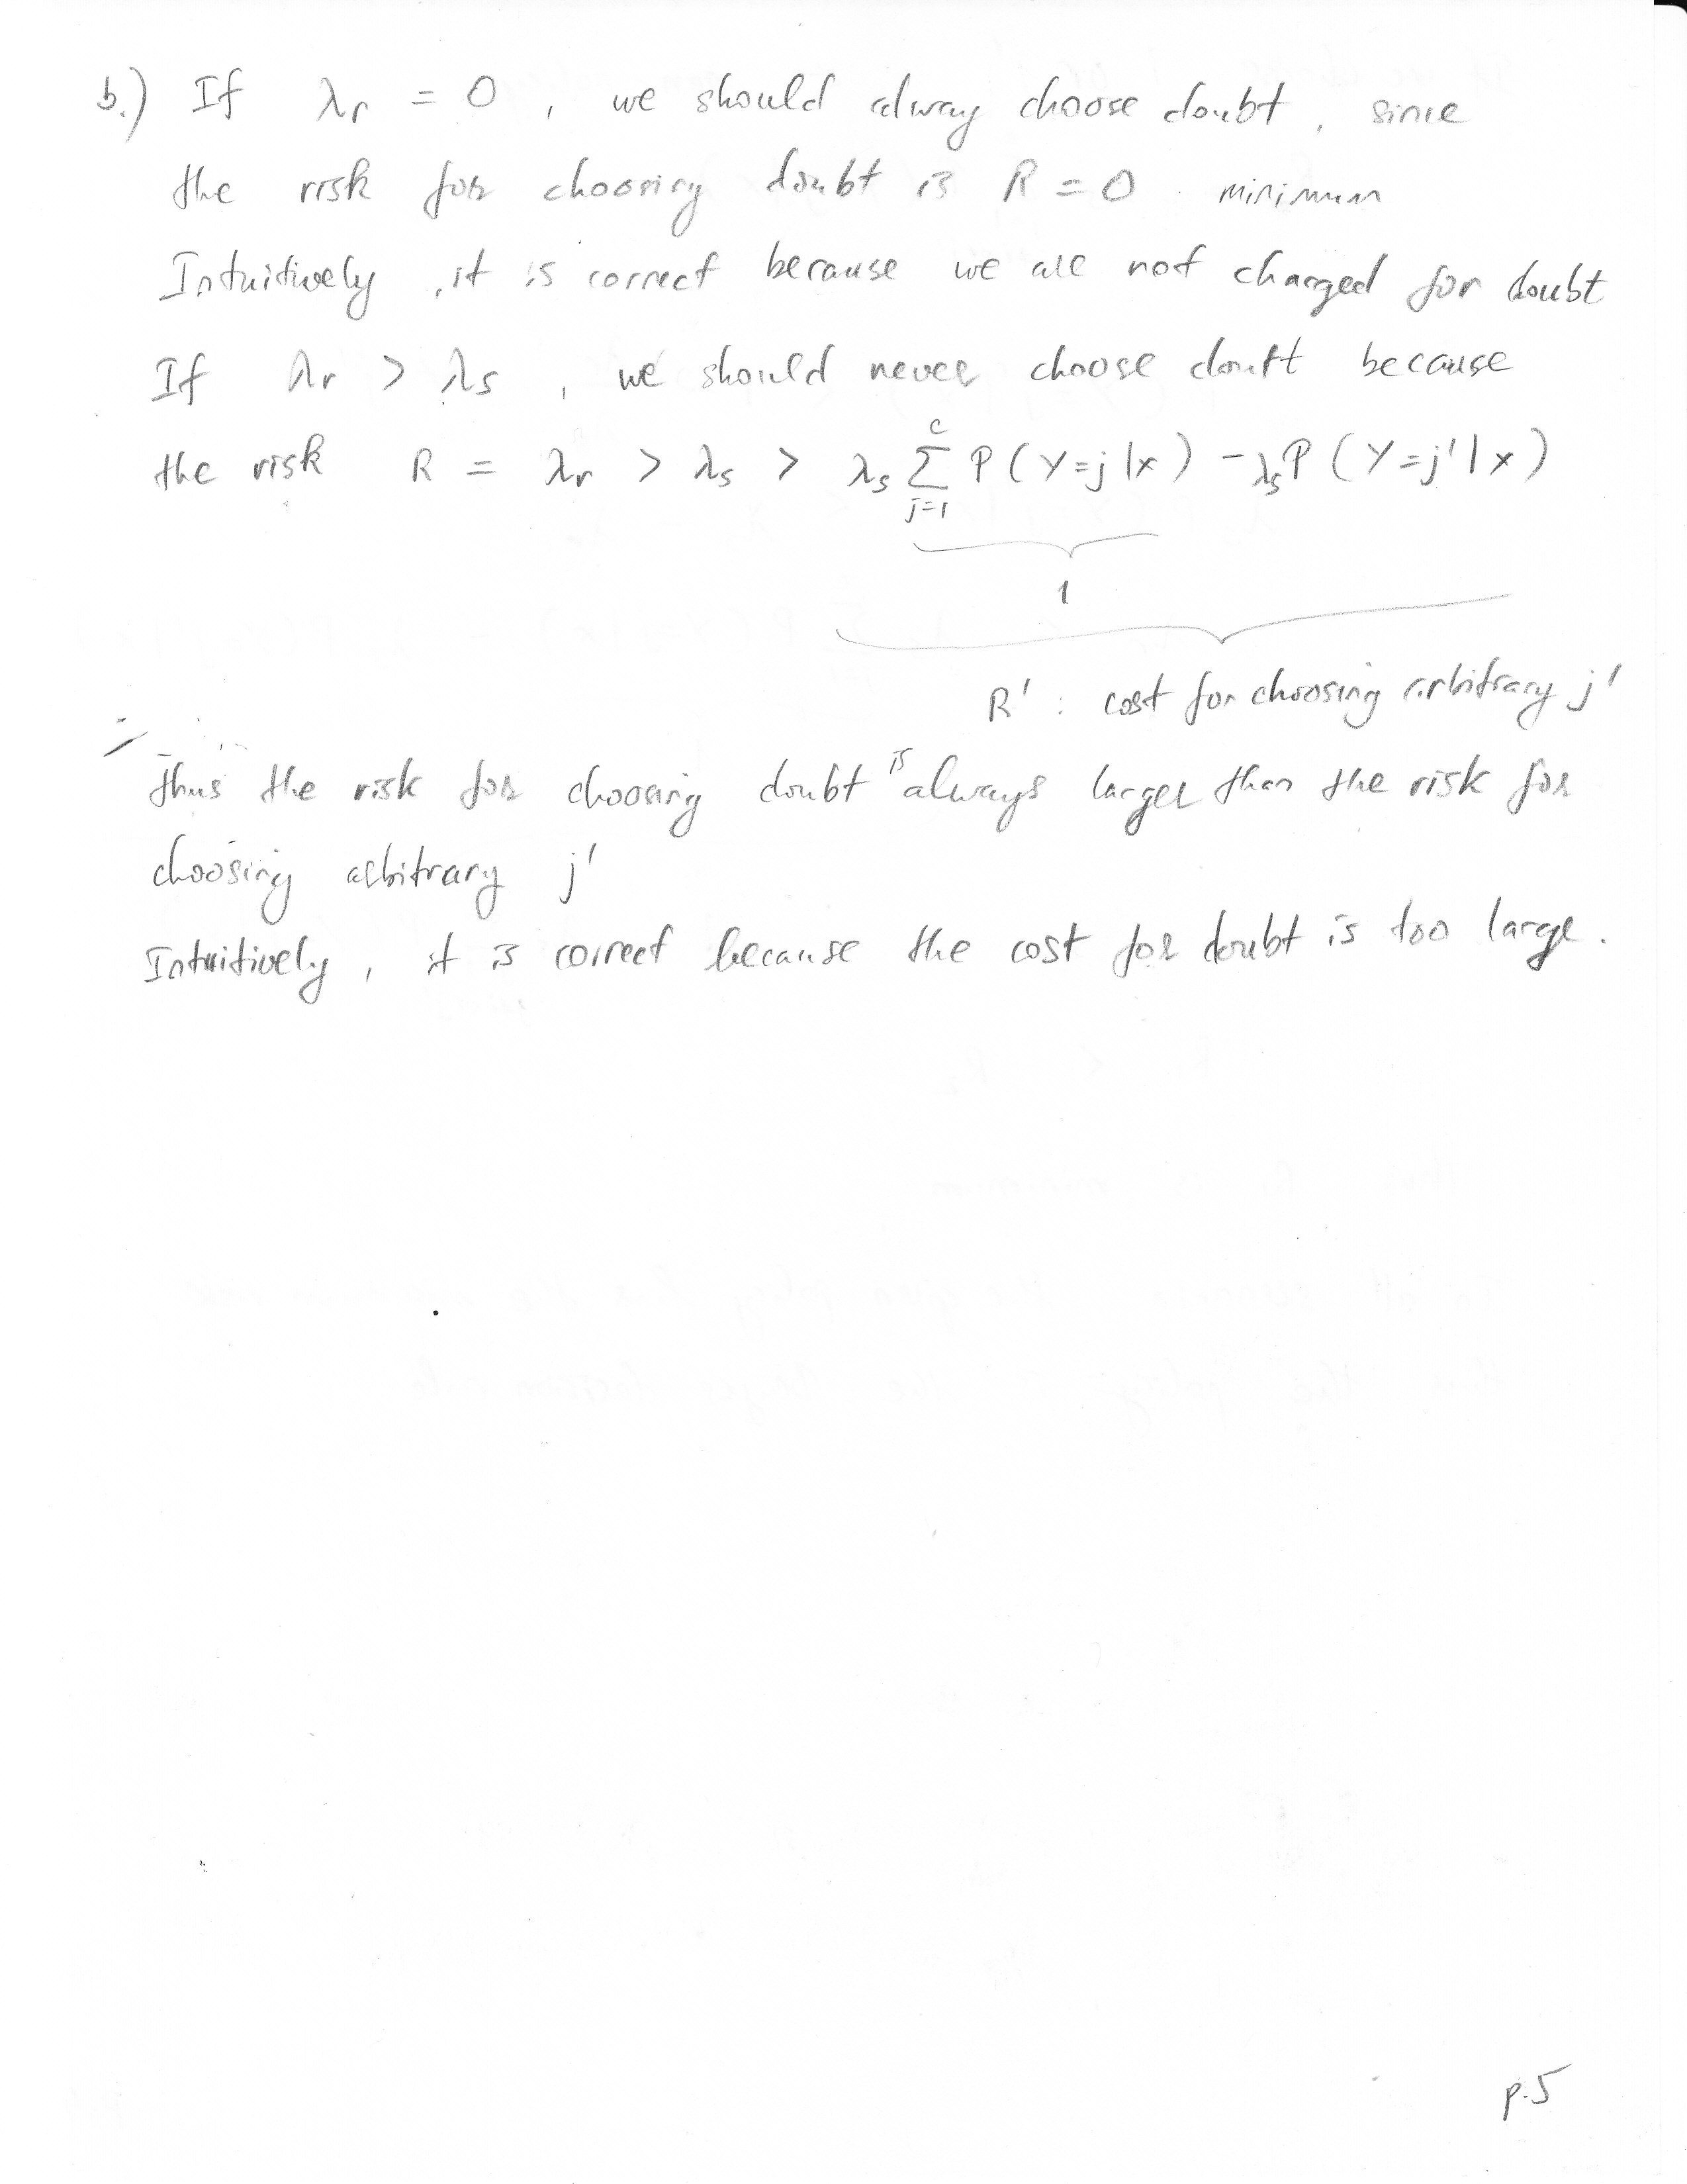 b.) If λr = 0 , we should alway choose doubt , since
the risk for choosing doubt is R = 0 . minimum
Intuitively , it is correct because we are not charged for doubt
If λr > λs , we should never choose doubt because
the risk R = λr > λs > λs Σ_{j=1}^{c} P(Y=j|x) - λs P(Y=j'|x)
1
R' : cost for choosing arbitrary j'
Thus the risk for choosing doubt is always larger than the risk for
choosing arbitrary j'
Intuitively , it is correct because the cost for doubt is too large .
p.5